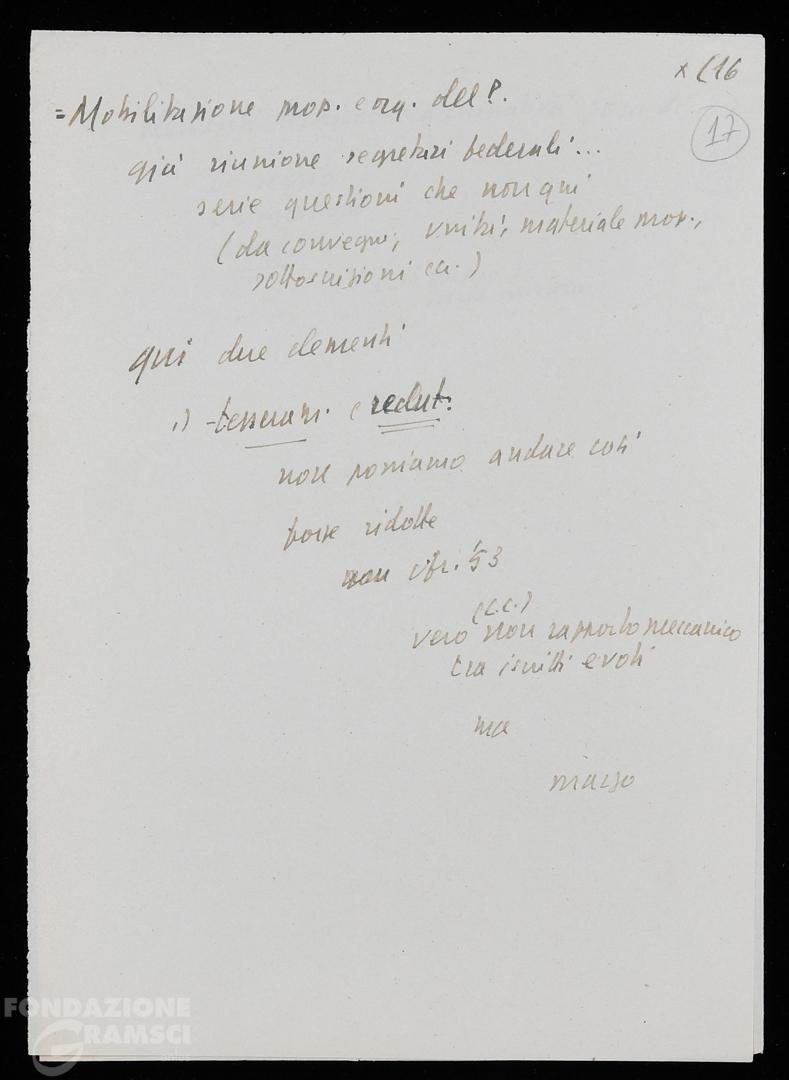 x (16
17
= Mobilitazione prop. e org. del P.
già riunione segretari federali...
serie questioni che non qui
(da convegni, unità, materiale prop.,
sottoscrizioni ecc.)
qui due elementi
1) tesseram. e reclut.
non possiamo andare così
forse ridotte
non
'53
(c.c.)
vero non rapporto meccanico
tra iscritti e voti
ma
marzo
FONDAZIONE
GRAMSCI